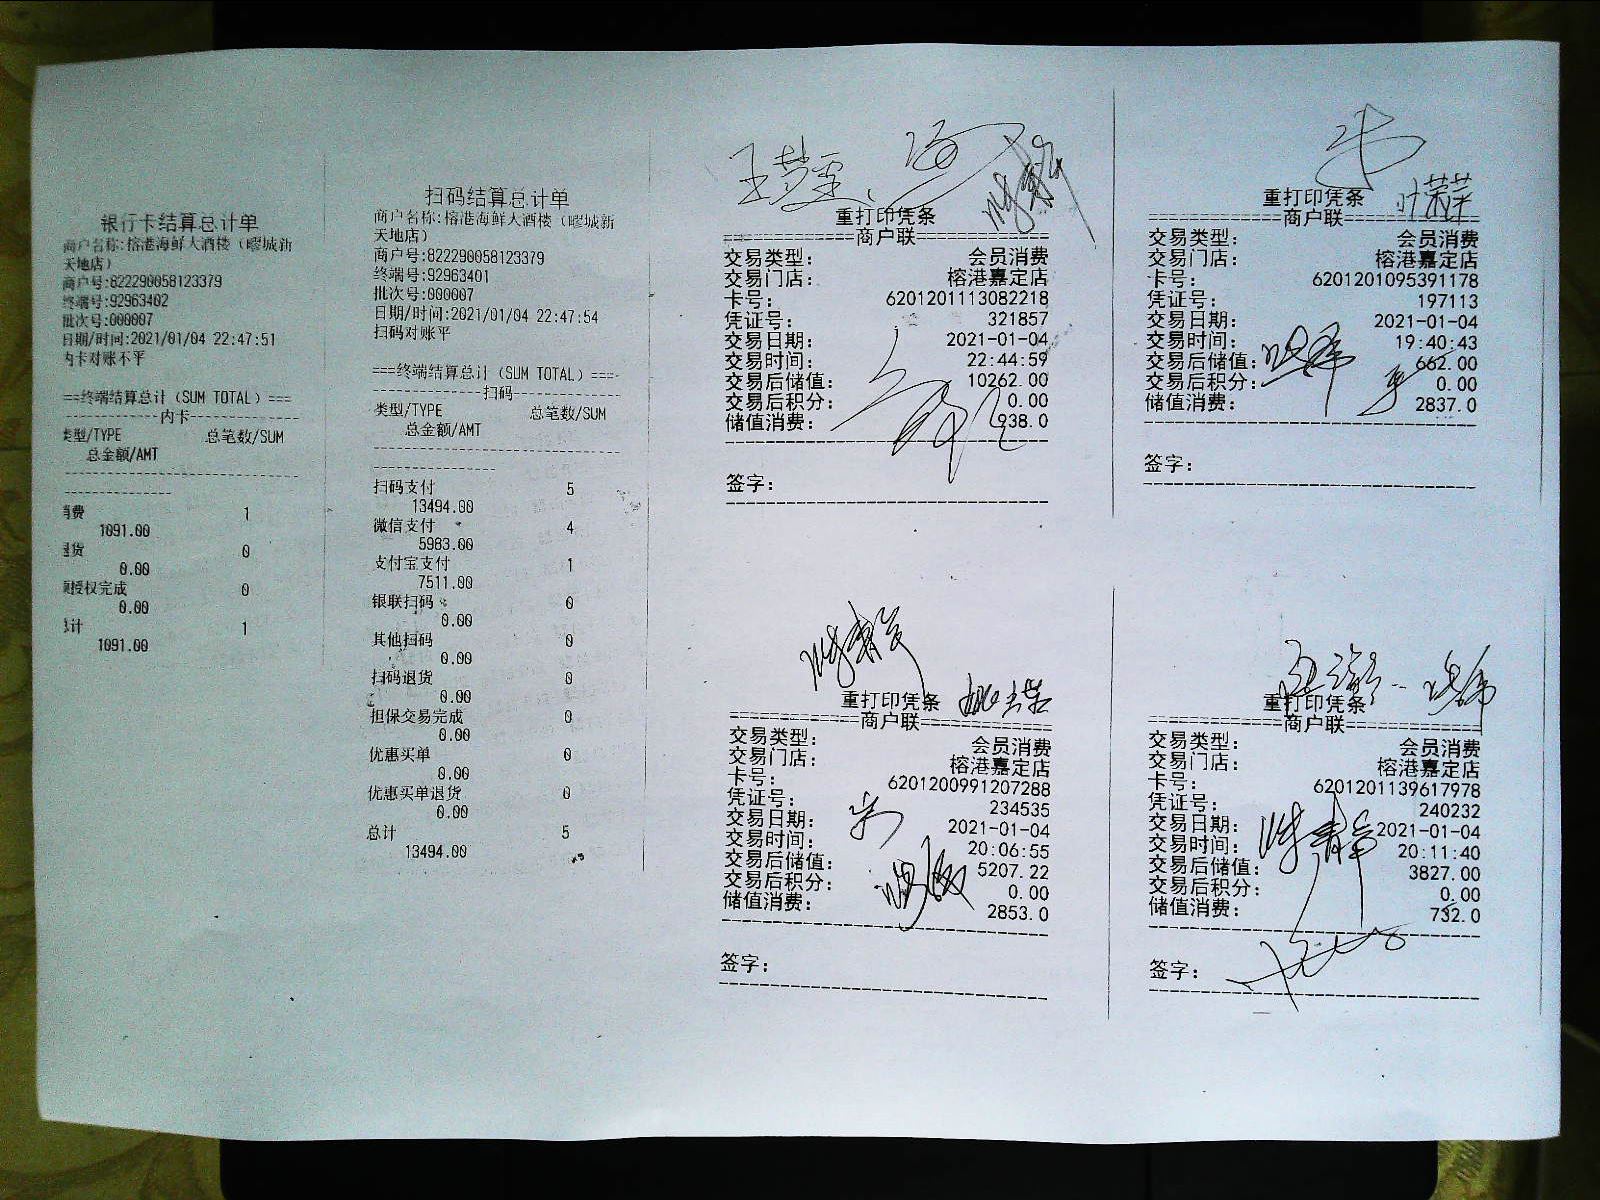 银行卡结算总计单
商户名称:榕港海鲜大酒楼（疁城新
天地店）
商户号:822290058123379
终端号:92963402
批次号:000007
日期/时间:2021/01/04 22:47:51
内卡对账不平
===终端结算总计（SUM TOTAL）===
------------内卡------------
类型/TYPE 总笔数/SUM
总金额/AMT
消费 1
1091.00
退货 0
0.00
授权完成 0
0.00
总计 1
1091.00
扫码结算总计单
商户名称:榕港海鲜大酒楼（疁城新
天地店）
商户号:822290058123379
终端号:92963401
批次号:000007
日期/时间:2021/01/04 22:47:54
扫码对账平
===终端结算总计（SUM TOTAL）===
------------扫码------------
类型/TYPE 总笔数/SUM
总金额/AMT
扫码支付 5
13494.00
微信支付 4
5983.00
支付宝支付 1
7511.00
银联扫码 0
0.00
其他扫码 0
0.00
扫码退货 0
0.00
担保交易完成 0
0.00
优惠买单 0
0.00
优惠买单退货 0
0.00
总计 5
13494.00
重打印凭条
============商户联============
交易类型: 会员消费
交易门店: 榕港嘉定店
卡号: 6201201113082218
凭证号: 321857
交易日期: 2021-01-04
交易时间: 22:44:59
交易后储值: 10262.00
交易后积分: 0.00
储值消费: 938.0
签字:
重打印凭条
============商户联============
交易类型: 会员消费
交易门店: 榕港嘉定店
卡号: 6201201095391178
凭证号: 197113
交易日期: 2021-01-04
交易时间: 19:40:43
交易后储值: 662.00
交易后积分: 0.00
储值消费: 2837.0
签字:
重打印凭条
============商户联============
交易类型: 会员消费
交易门店: 榕港嘉定店
卡号: 6201200991207288
凭证号: 234535
交易日期: 2021-01-04
交易时间: 20:06:55
交易后储值: 5207.22
交易后积分: 0.00
储值消费: 2853.0
签字:
重打印凭条
============商户联============
交易类型: 会员消费
交易门店: 榕港嘉定店
卡号: 6201201139617978
凭证号: 240232
交易日期: 2021-01-04
交易时间: 20:11:40
交易后储值: 3827.00
交易后积分: 0.00
储值消费: 732.0
签字: